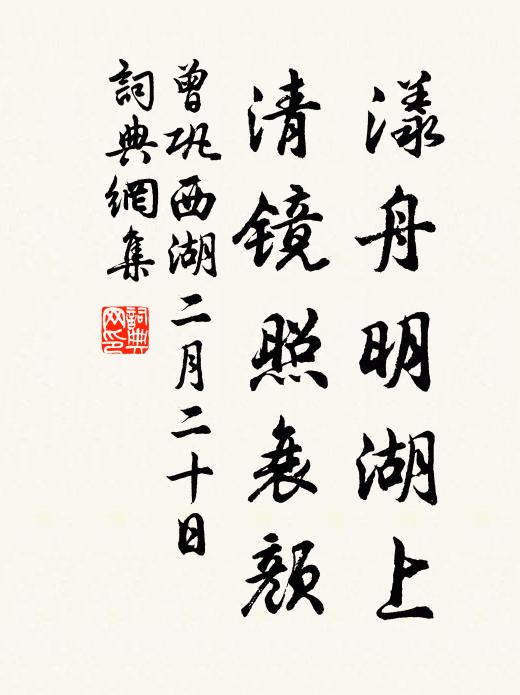 漾舟明湖上
清镜照衰颜
曾巩西湖二月二十日
詞典網集
詞典网印